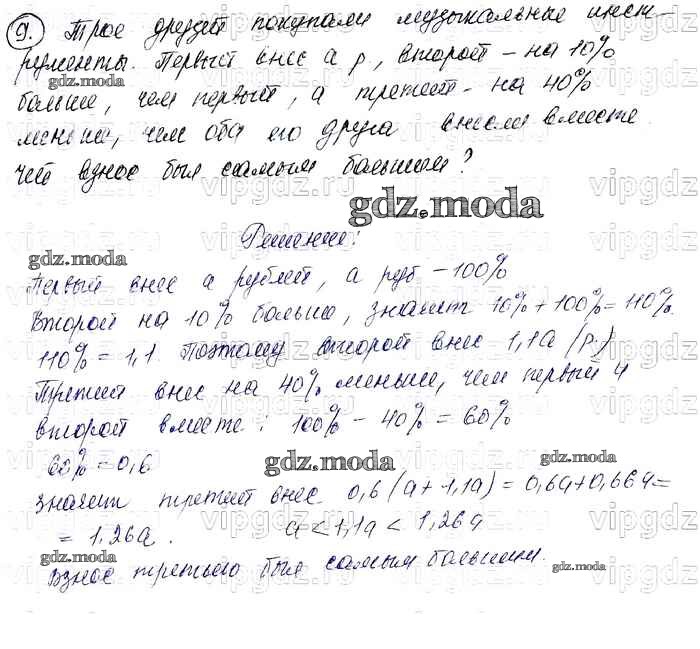 9. Трое друзей покупали музыкальные инст-
рументы. Первый внёс а р., второй – на 10%
больше, чем первый, а третий – на 40%
меньше, чем оба его друга внесли вместе.
Чей взнос был самым большим?
gdz.moda
Решение:
gdz.moda
Первый внес а рублей, а руб – 100%
Второй на 10% больше, значит 10% + 100% = 110%.
110% = 1,1. Поэтому второй внес 1,1а (р.)
Третий внес на 40% меньше, чем первый и
второй вместе: 100% – 40% = 60%
60% = 0,6
gdz.moda
gdz.moda
значит третий внес 0,6(а + 1,1а) = 0,6а + 0,66а =
= 1,26а. а < 1,1а < 1,26а
gdz.moda
Взнос третьего был самым большим.
gdz.moda
vipgdz.ru